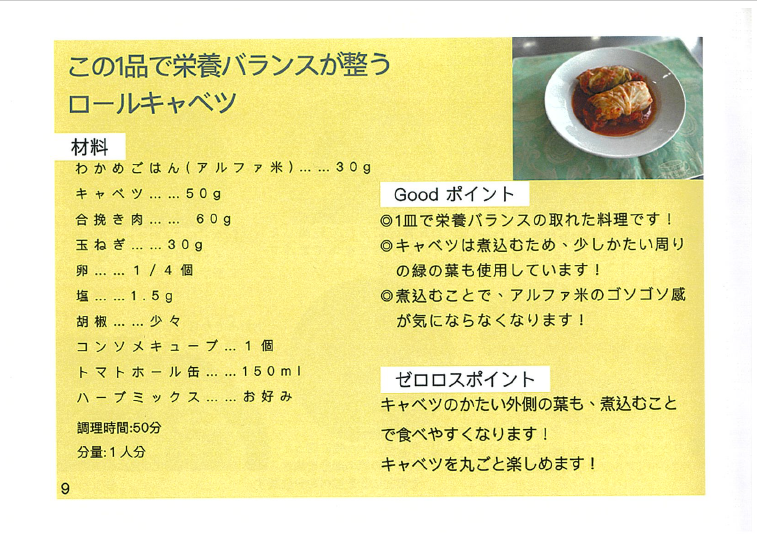 この1品で栄養バランスが整う
ロールキャベツ
材料
わかめごはん(アルファ米)……30g
キャベツ……50g
合挽き肉…… 60g
玉ねぎ……30g
卵……1/4個
塩……1.5g
胡椒……少々
コンソメキューブ…1個
トマトホール缶……150ml
ハーブミックス……お好み
調理時間:50分
分量:1人分
9
Good ポイント
◎1皿で栄養バランスの取れた料理です！
◎キャベツは煮込むため、少しかたい周り
の緑の葉も使用しています！
◎煮込むことで、アルファ米のゴソゴソ感
が気にならなくなります！
ゼロロスポイント
キャベツのかたい外側の葉も、煮込むこと
で食べやすくなります！
キャベツを丸ごと楽しめます！